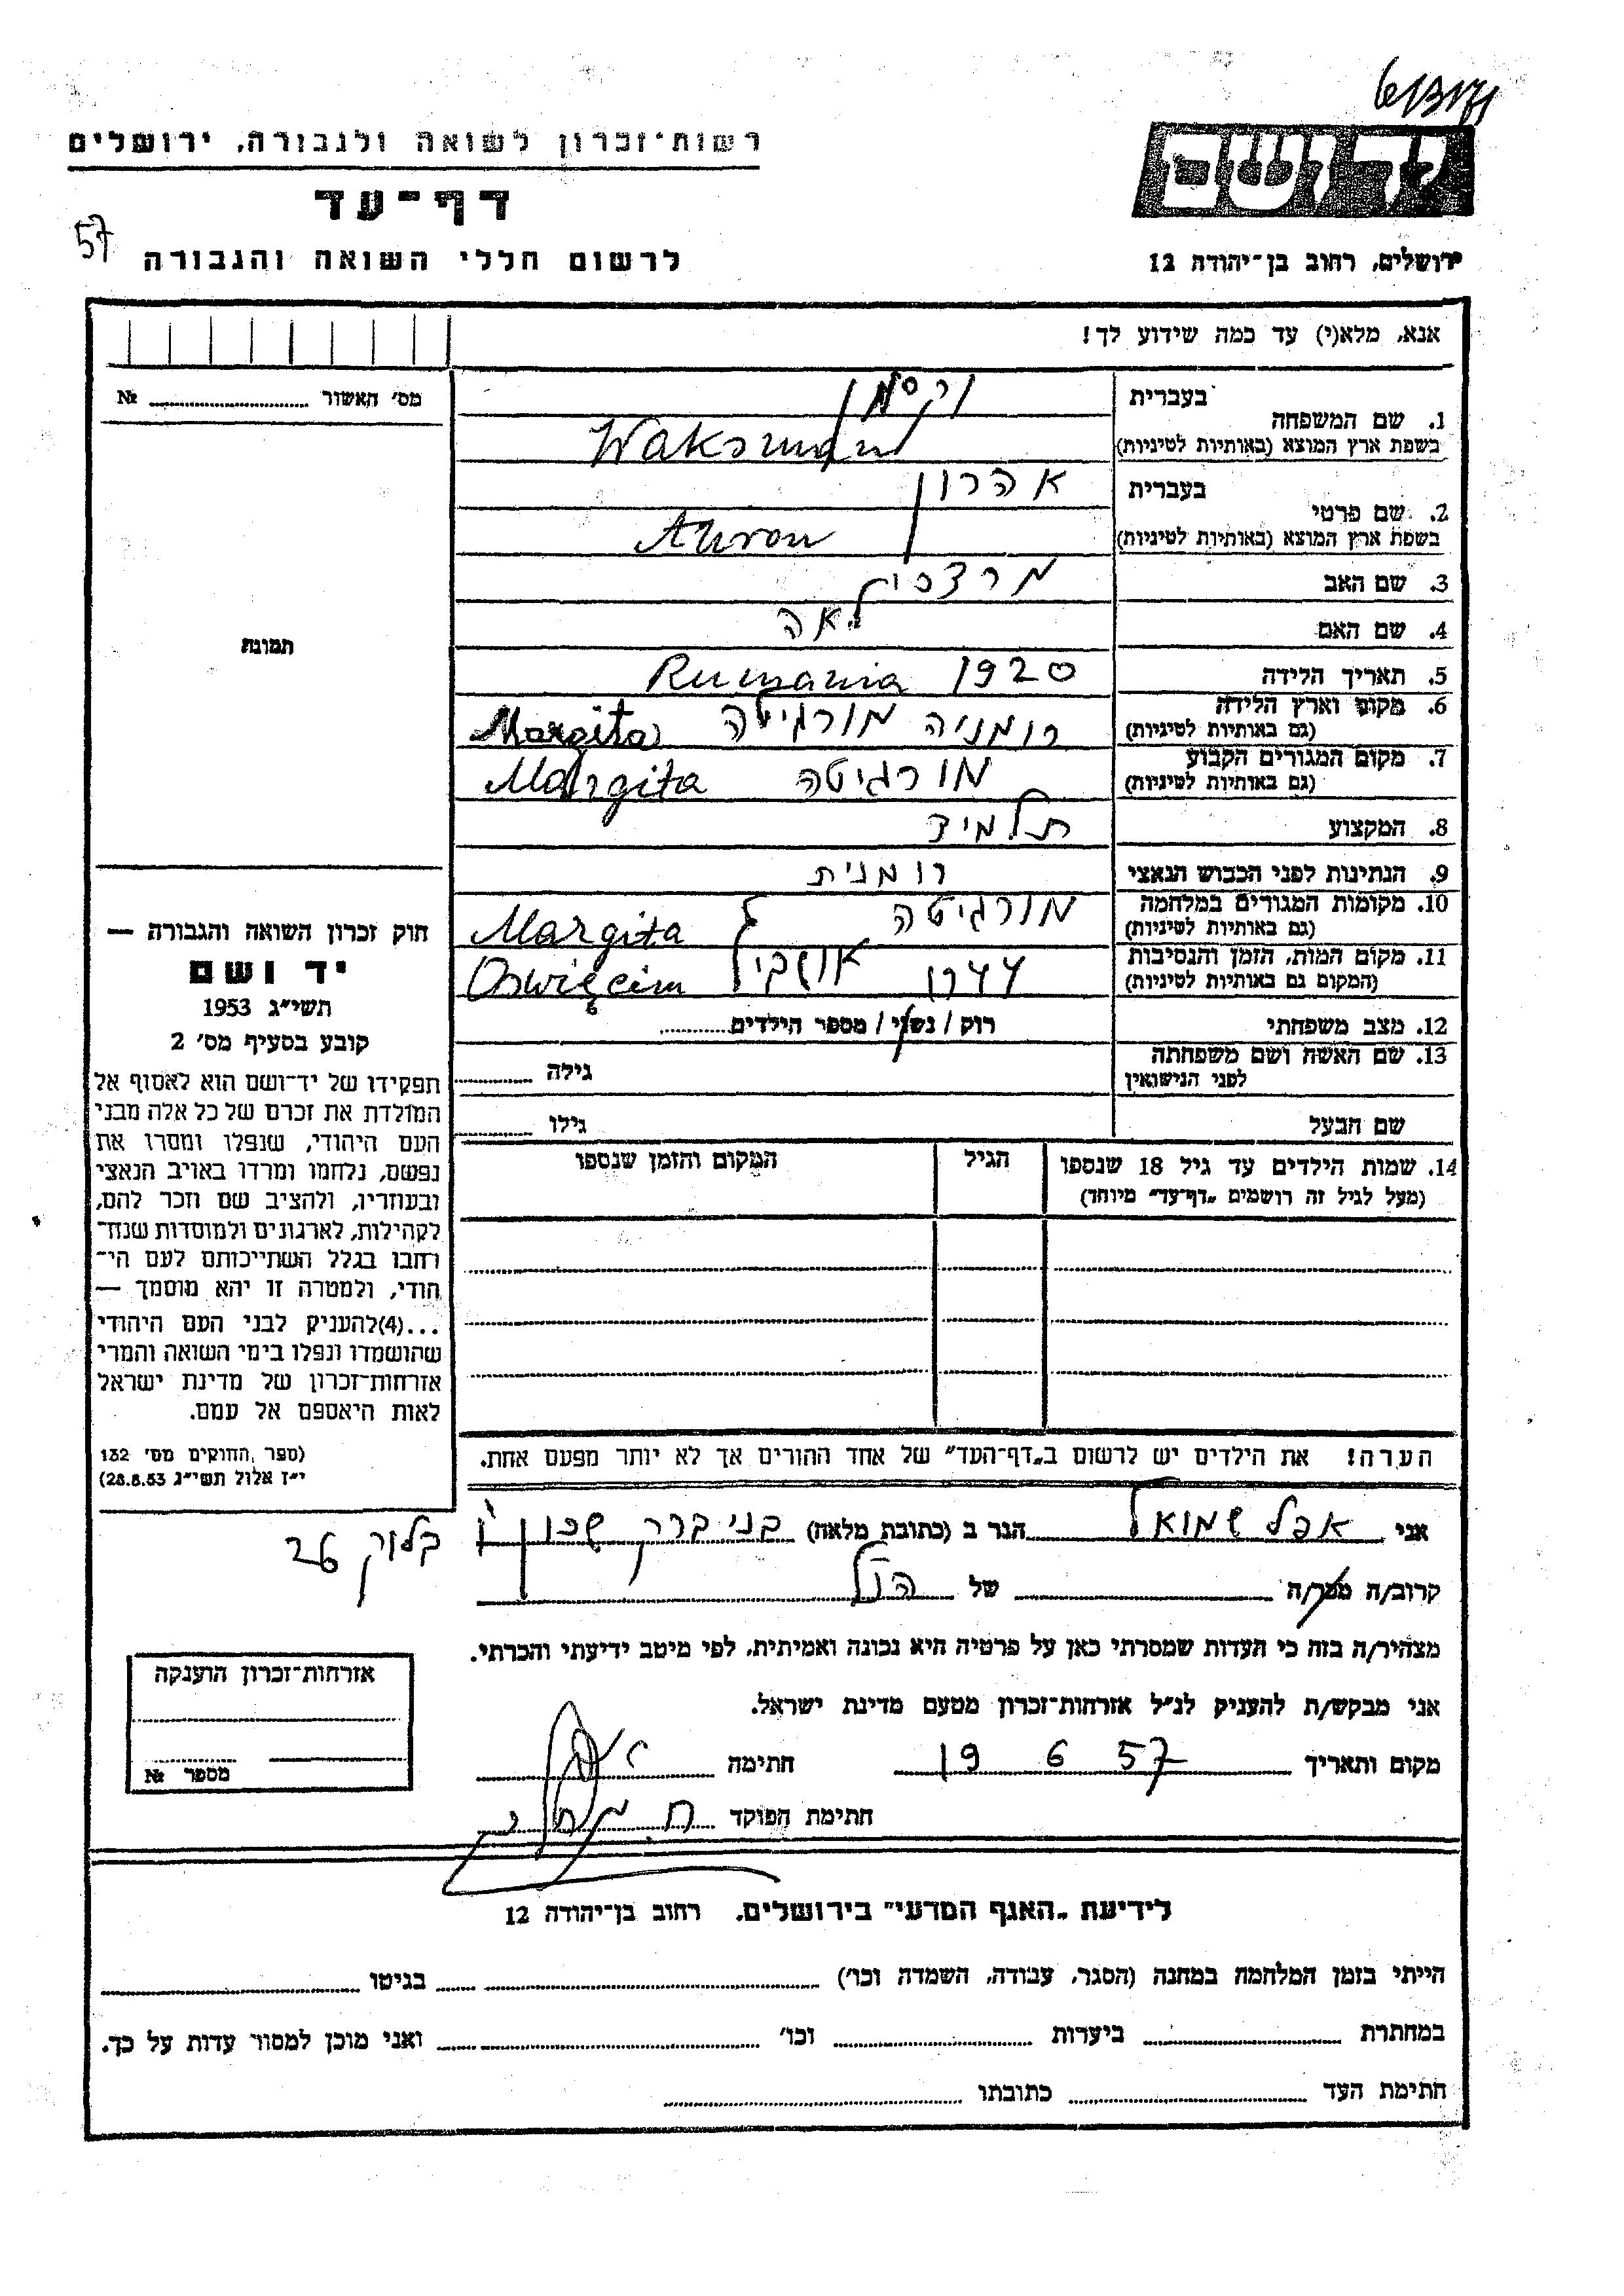 רשות־זכרון לשואה ולגבורה, ירושלים
דף־עד
57
לרשום חללי השואה והגבורה
יד ושם
ירושלים, רחוב בן־יהודה 12
אנא, מלא(י) עד כמה שידוע לך!
מס' האשור ........ №
בעברית
וקסמן
1. שם המשפחה
בשפת ארץ המוצא (באותיות לטיניות)
Waksman
בעברית
אהרון
2. שם פרטי
בשפת ארץ המוצא (באותיות לטיניות)
Ahron
3. שם האב
מרדכי
4. שם האם
לאה
תמונה
5. תאריך הלידה
1920 Rumania
6. מקום וארץ הלידה
(גם באותיות לטיניות)
רומניה מורגיטה Margita
7. מקום המגורים הקבוע
(גם באותיות לטיניות)
מורגיטה Margita
8. המקצוע
תלמיד
9. הנתינות לפני הכבוש הנאצי
רומנית
10. מקומות המגורים במלחמה
(גם באותיות לטיניות)
מורגיטה Margita
11. מקום המות, הזמן והנסיבות
(המקום גם באותיות לטיניות)
Oswięcim
12. מצב משפחתי
רוק / נשוי / מספר הילדים........
13. שם האשה ושם משפחתה
לפני הנישואין
גילה ........
שם הבעל
גילו ........
14. שמות הילדים עד גיל 18 שנספו
(מעל לגיל זה רושמים „דף־עד" מיוחד)
הגיל
המקום והזמן שנספו
חוק זכרון השואה והגבורה —
יד ושם
תשי״ג 1953
קובע בסעיף מס' 2
תפקידו של יד־ושם הוא לאסוף אל
המולדת את זכרם של כל אלה מבני
העם היהודי, שנפלו ומסרו את
נפשם, נלחמו ומרדו באויב הנאצי
ובעוזריו, ולהציב שם וזכר להם,
לקהילות, לארגונים ולמוסדות שנח־
רחבו בגלל השתייכותם לעם הי־
הודי, ולמטרה זו יהא מוסמך —
...(4)להעניק לבני העם היהודי
שהושמדו ונפלו בימי השואה והמרי
אזרחות־זכרון של מדינת ישראל
לאות היאספם אל עמם.
(ספר החוקים מס' 132
י״ז אלול תשי״ג 28.8.53)
הערה! את הילדים יש לרשום ב„דף־העד" של אחד ההורים אך לא יותר מפעם אחת.
אני אפל שמואל הגר ב (כתובת מלאה) בני ברק שכון
בלוק 26
קרוב/ה מכר/ה ........ של הנ״ל
מצהיר/ה בזה כי העדות שמסרתי כאן על פרטיה היא נכונה ואמיתית, לפי מיטב ידיעתי והכרתי.
אני מבקש/ת להעניק לנ״ל אזרחות־זכרון מטעם מדינת ישראל.
מקום ותאריך 19 6 57 חתימה
חתימת הפוקד
אזרחות־זכרון הוענקה
מספר №
לידיעת „האגף המדעי" בירושלים, רחוב בן־יהודה 12
הייתי בזמן המלחמה במחנה (הסגר, עבודה, השמדה וכו') ........ בגיטו ........
במחתרת ........ ביערות ........ וכו' ........ ואני מוכן למסור עדות על כך.
חתימת העד ........ כתובתו ........